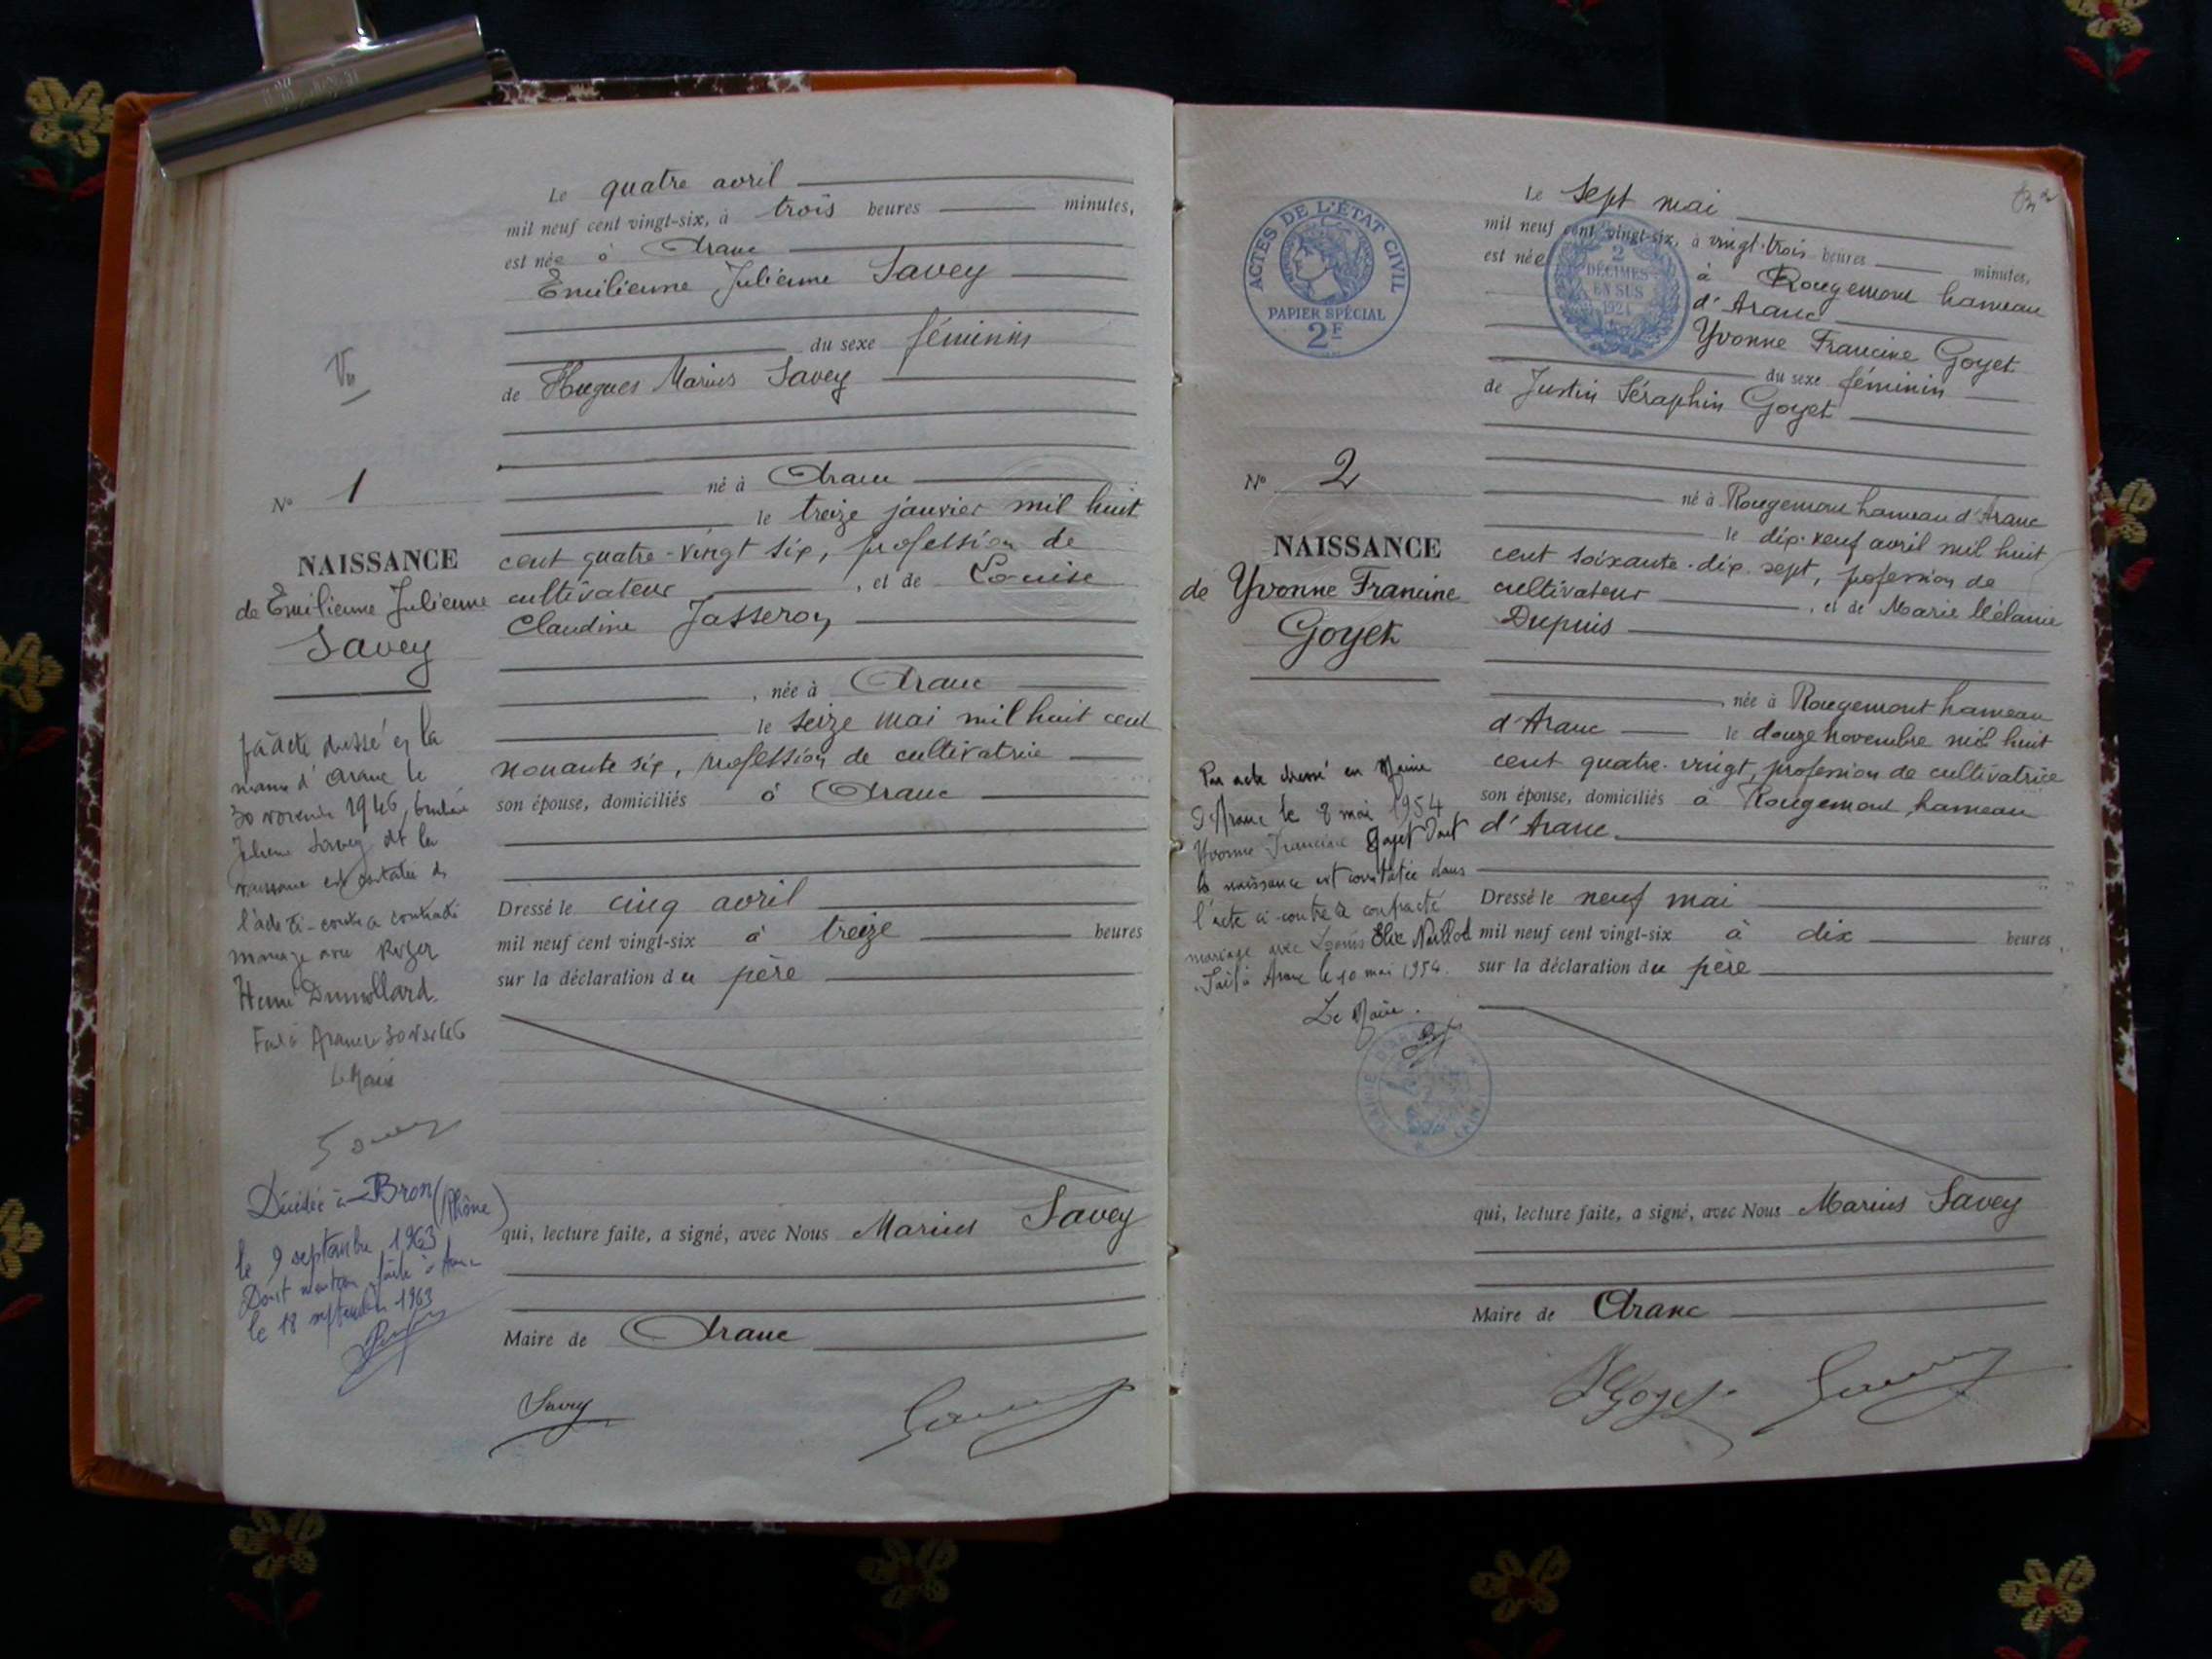 Vu
N° 1
NAISSANCE
de Emilienne Julienne
Savey
Le quatre avril
mil neuf cent vingt-six, à trois heures minutes,
est née à Aranc
Emilienne Julienne Savey
du sexe féminin
de Hugues Marius Savey
né à Aranc
le treize janvier mil huit
cent quatre-vingt six, profession de
cultivateur, et de Louise
Claudine Jasseron
, née à Aranc
le seize mai mil huit cent
nonante six, profession de cultivatrice
son épouse, domiciliés à Aranc
Dressé le cinq avril
mil neuf cent vingt-six à treize heures
sur la déclaration du père
qui, lecture faite, a signé, avec Nous Marius Savey
Maire de Aranc
Savey
acte dressé en la
mairie d'Aranc le
30 novembre 1946, Emilienne
Julienne Savey dt la
naissance est constatée ds
l'acte ci-contre a contracté
mariage avec Roger
Henri Dumollard.
Fait à Aranc le 30 nov 46
Le Maire
Savey
Décédée à Bron (Rhône)
le 9 septembre 1963
Dont mention faite à Aranc
le 18 septembre 1963
ACTES DE L'ÉTAT CIVIL
PAPIER SPÉCIAL
2F
2
DÉCIMES
EN SUS
1921
N° 2
NAISSANCE
de Yvonne Francine
Goyet
Le sept mai
mil neuf cent vingt-six, à vingt-trois heures minutes,
est née à Rougemont hameau
d'Aranc
Yvonne Francine Goyet
du sexe féminin
de Justin Séraphin Goyet
né à Rougemont hameau d'Aranc
le dix-neuf avril mil huit
cent soixante-dix-sept, profession de
cultivateur, et de Marie Mélanie
Dupuis
, née à Rougemont hameau
d'Aranc le douze novembre mil huit
cent quatre-vingt, profession de cultivatrice
son épouse, domiciliés à Rougemont hameau
d'Aranc.
Dressé le neuf mai
mil neuf cent vingt-six à dix heures,
sur la déclaration du père
qui, lecture faite, a signé, avec Nous Marius Savey
Maire de Aranc
Goyet
Par acte dressé en Mairie
d'Aranc le 8 mai 1954
Yvonne Francine Goyet dont
la naissance est constatée dans
l'acte ci-contre a contracté
mariage avec Louis
Fait à Aranc le 10 mai 1954.
Le Maire.